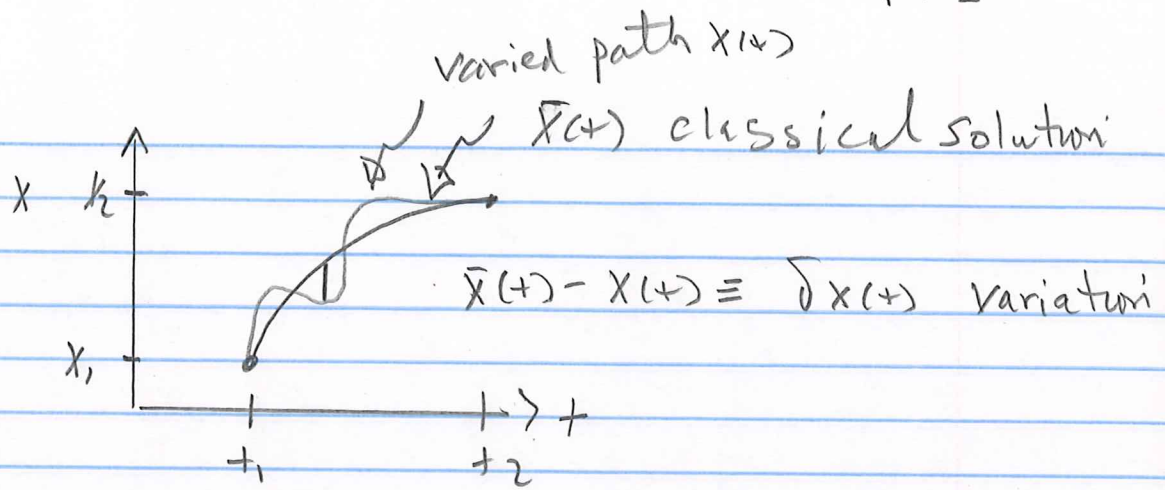 varied path x(t)
x̄(t) classical solution
x x₂
x̄(t) - x(t) ≡ δx(t) variation
x₁
t
t₁ t₂